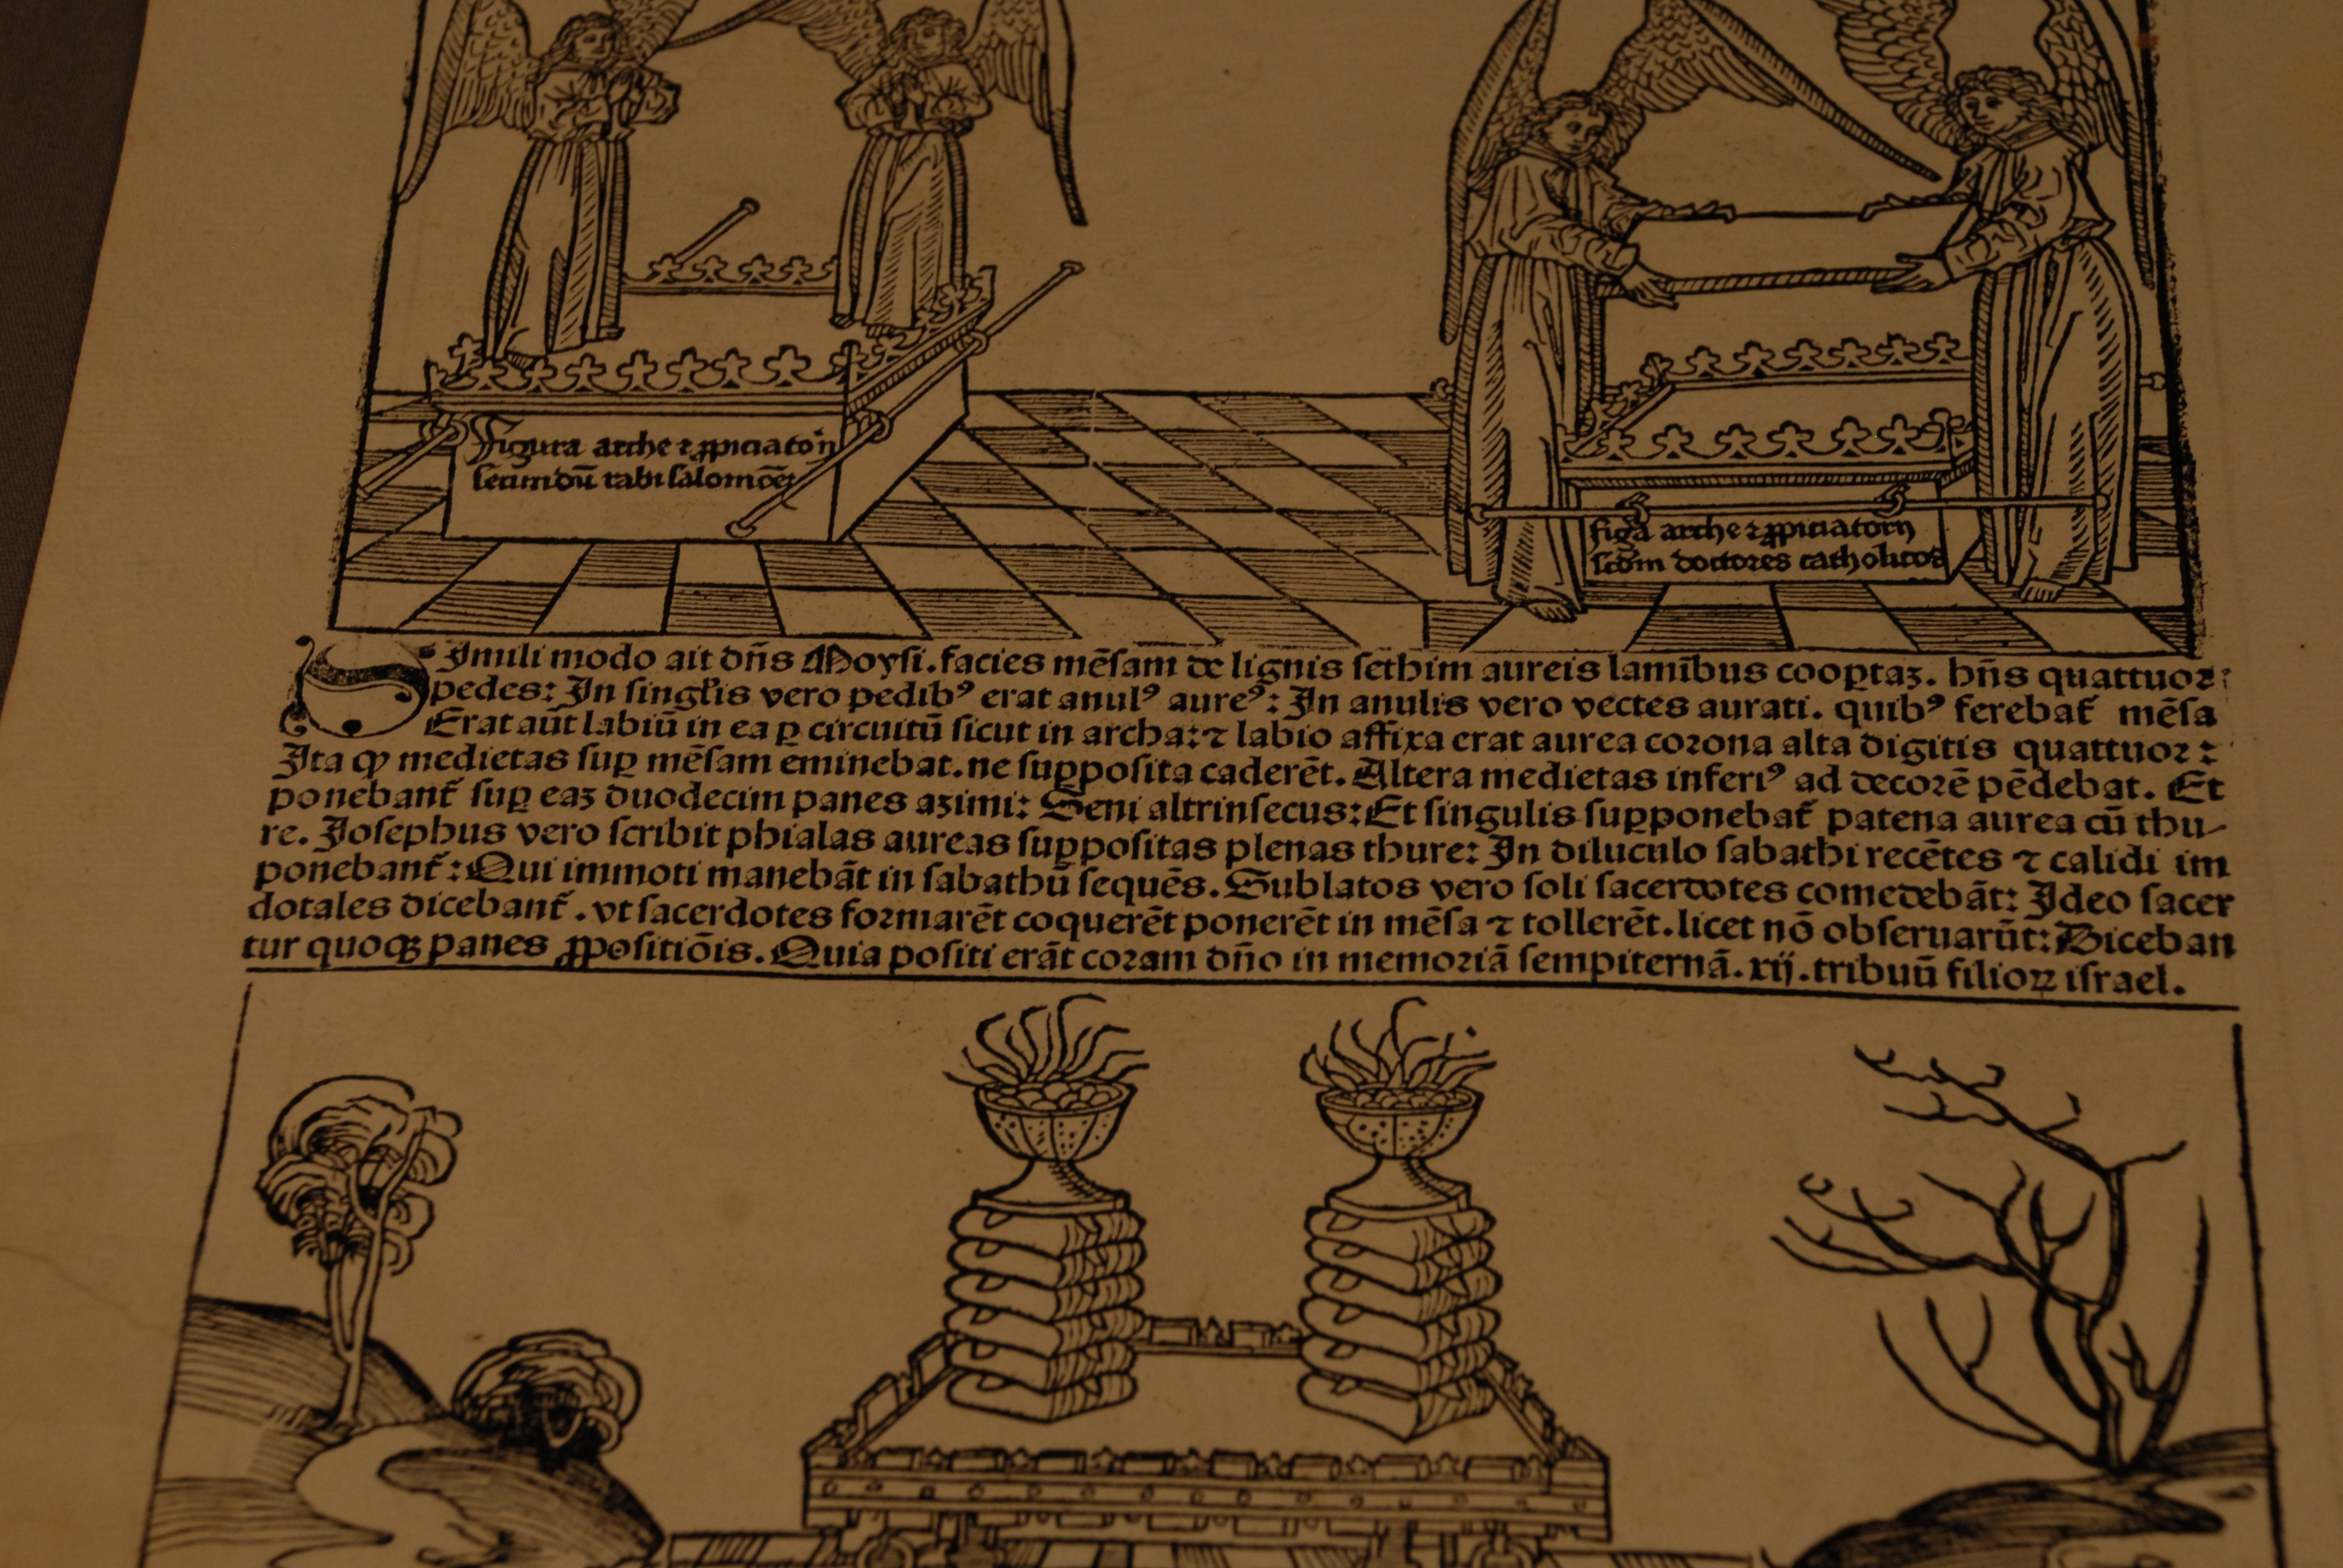 Figura arche ⁊ ꝓpiciatorij
secundū rabi salomōeȝ
figa arche ⁊ ꝓpiciatorij
scdm doctores catholicos
SImili modo ait dn̄s Moysi. facies mēsam de lignis sethim aureis lamībus cooꝑtaȝ. hn̄s quattuor
pedes: In singl'is vero pedibꝰ erat anulꝰ aureꝰ: In anulis vero vectes aurati. quibꝰ ferebat᷑ mēsa
Erat aūt labiū in ea ꝑ circuitū sicut in archa: ⁊ labio affixa erat aurea corona alta digitis quattuor:
Ita ꝙ medietas suꝑ mēsam eminebat. ne suꝑposita caderēt. Altera medietas inferiꝰ ad decorē pēdebat. Et
ponebant᷑ suꝑ eaȝ duodecim panes azimi: Seni altrinsecus: Et singulis suꝑponebat᷑ patena aurea cū thu-
re. Josephus vero scribit phialas aureas suꝑpositas plenas thure: In diluculo sabathi recētes ⁊ calidi im
ponebant᷑: Qui immoti manebāt in sabathū sequēs. Sublatos vero soli sacerdotes comedebāt: Ideo sacer
dotales dicebant᷑. vt sacerdotes formarēt coquerēt ponerēt in mēsa ⁊ tollerēt. licet nō obseruarūt: Diceban
tur quoqȝ panes ꝓpositiōis. Quia positi erāt coram dn̄o in memoriā sempiternā. xij. tribuū filioꝝ israel.